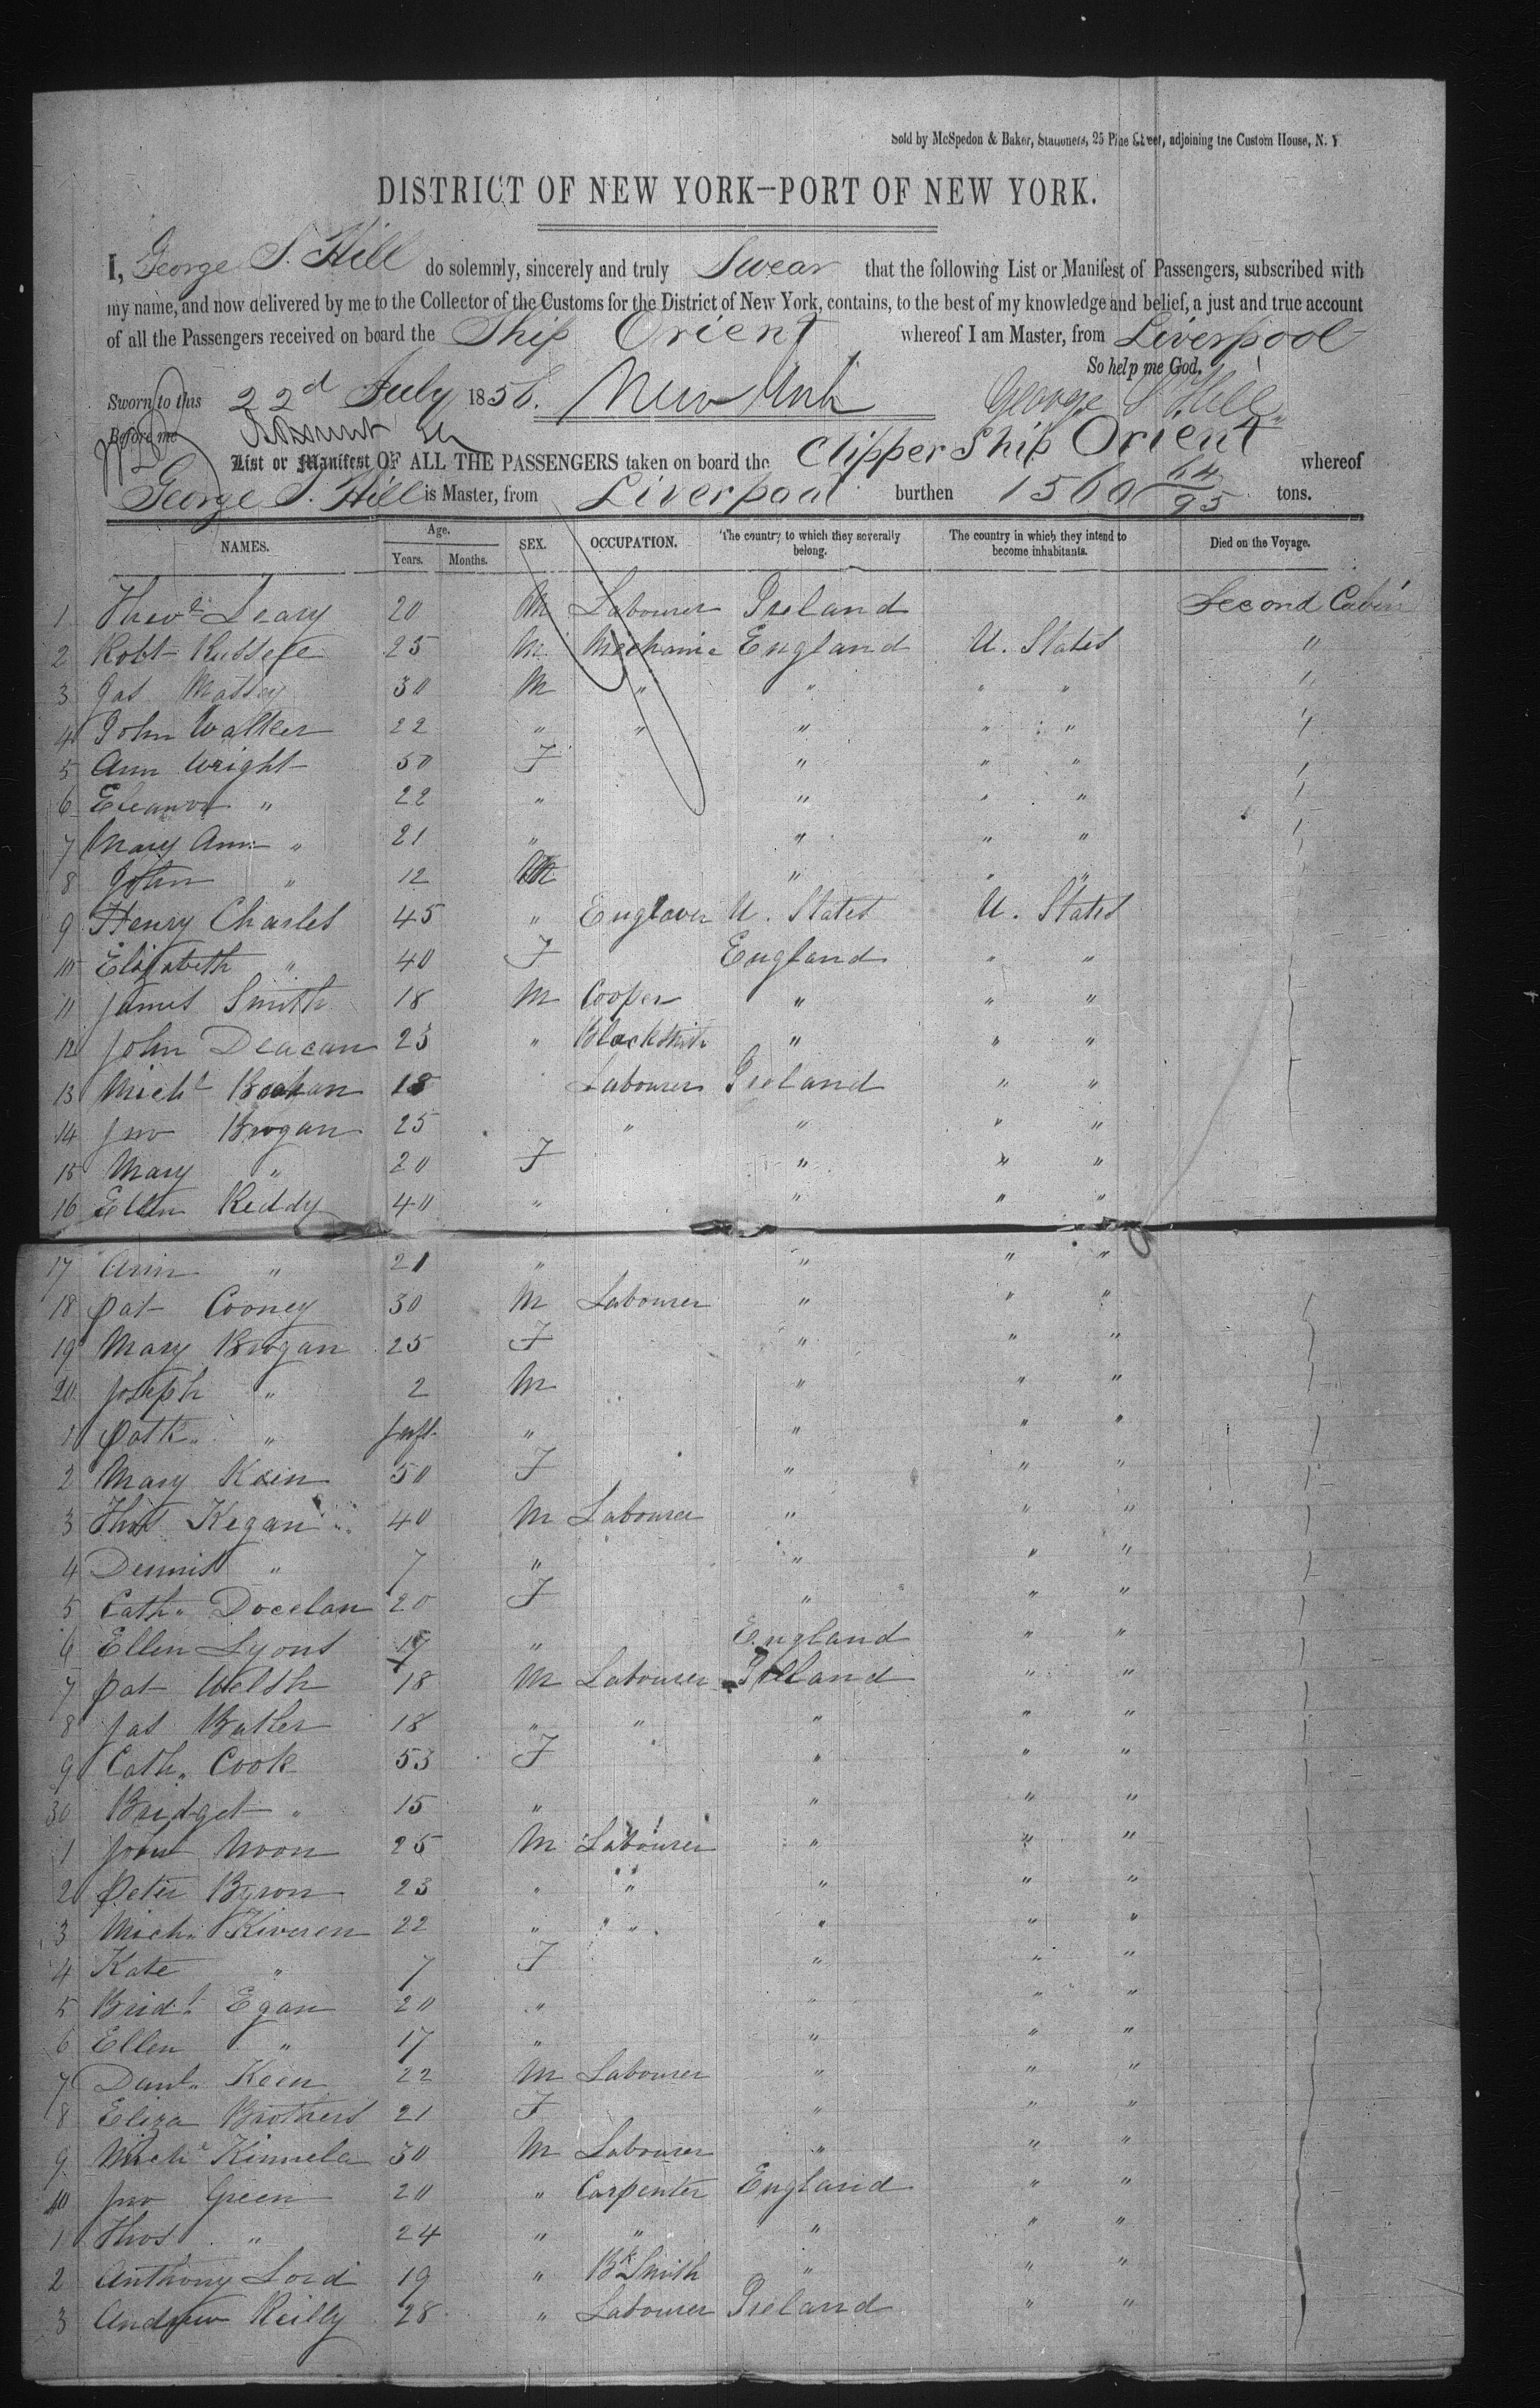 Sold by McSpedon & Baker, Stationers, 25 Pine Street, adjoining the Custom House, N. Y
DISTRICT OF NEW YORK—PORT OF NEW YORK.
I, George S. Hill do solemnly, sincerely and truly Swear that the following List or Manifest of Passengers, subscribed with
my name, and now delivered by me to the Collector of the Customs for the District of New York, contains, to the best of my knowledge and belief, a just and true account
of all the Passengers received on board the Ship Orient whereof I am Master, from Liverpool
So help me God.
Sworn to this 22d July 1858. New York George S Hill
Before me
List or Manifest OF ALL THE PASSENGERS taken on board the Clipper Ship Orient whereof
George S. Hill is Master, from Liverpool burthen 1560 64/95 tons.
NAMES. Age. Years. Months. SEX. OCCUPATION. The country to which they severally belong. The country in which they intend to become inhabitants. Died on the Voyage.
1 Leary 20 M Labourer Ireland Second Cabin
2 Robt Russele 25 M Mechanic England U. States "
3 Jas Massey 30 M " " " " "
4 John Walker 22 " " " " " "
5 Ann Wright 50 F " " "
6 Eleanor " 22 " " " "
7 Mary Ann " 21 " " " "
8 John " 12 M " " "
9 Henry Charles 45 " U. States U. States
10 Elizabeth " 40 F England " "
11 James Smith 18 M Cooper " " "
12 John Deacan 23 " Blacksmith " " "
13 Michl 18 Labourer Ireland " "
14 Jno Brogan 25 " " " "
15 Mary " 20 F " " "
16 Ellen Reddy 40 " " " "
17 Ann " 21 " " " "
18 Pat Cooney 30 M Labourer " " "
19 Mary Brogan 25 F " " "
20 Joseph " 2 M " " "
1 Patk " Inft. " " " "
2 Mary Kein 50 F " " "
3 Thos Kegan 40 M Labourer " " "
4 Dennis " 7 " " " "
5 Cath. Docelan 20 F " " "
6 Ellen Lyons 17 " England " "
7 Pat Welsh 18 M Labourer Ireland " "
8 Jas Butler 18 " " " " "
9 Cath. Cook 53 F " " "
30 Bridget " 15 " " " "
1 Noon 25 M Labourer " " "
2 Peter Byron 23 " " " " "
3 Mich. Kiveren 22 " " " " "
4 Kate " 7 F " " "
5 Bridt Egan 20 " " " "
6 Ellen " 17 " " " "
7 Danl. Keen 22 M Labourer " " "
8 Eliza Brothers 21 F " " "
9 Michl Kinnela 30 M Labourer " " "
40 Jno Green 20 " Carpenter England " "
1 Thos " 24 " " " " "
2 Anthony Lord 19 " Bk Smith " " "
3 Andrew Reilly 28 " Labourer Ireland " "